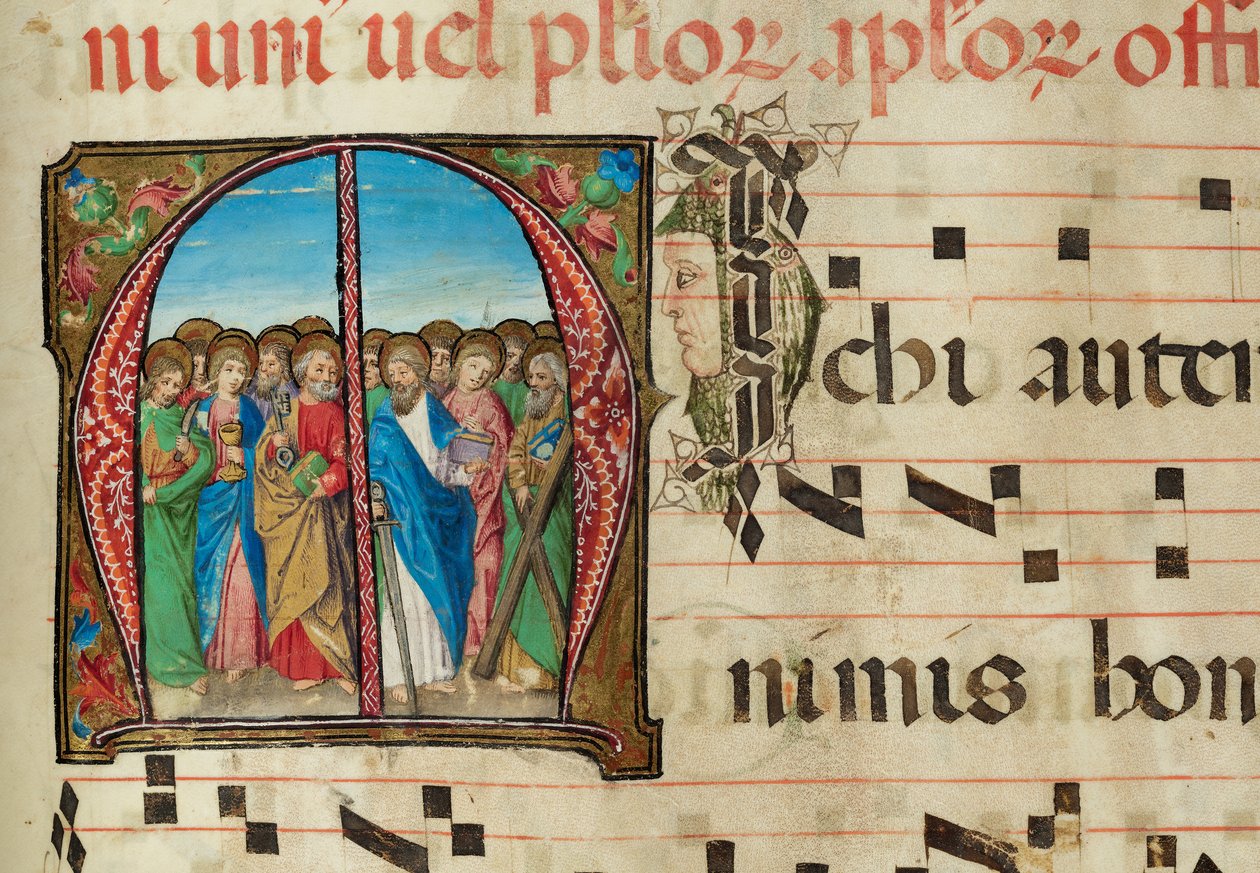 ni uni' uel plioꝝ .aploꝝ offi
MIchi autem
nimis hon